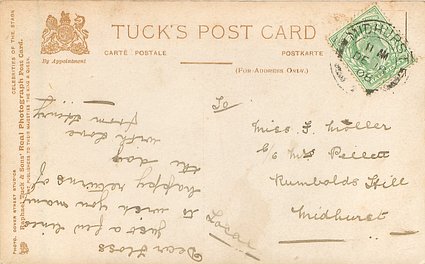 TUCK'S POST CARD
CARTE POSTALE
POSTKARTE
(FOR ADDRESS ONLY.)
By Appointment
CELEBRITIES OF THE STAGE
Raphael Tuck & Sons' Real Photograph Post Card.
PUBLISHERS TO THEIR MAJESTIES THE KING & QUEEN.
PHOTO. DOVER STREET STUDIOS.
MIDHURST
11 AM
DE 18
08
To
Miss F Moller
C/o Mrs Pellett
Rumbolds Hill
Midhurst
Local
Dear Floss
Just a few lines
to wish you many
happy returns of
the day
with love
from Henry